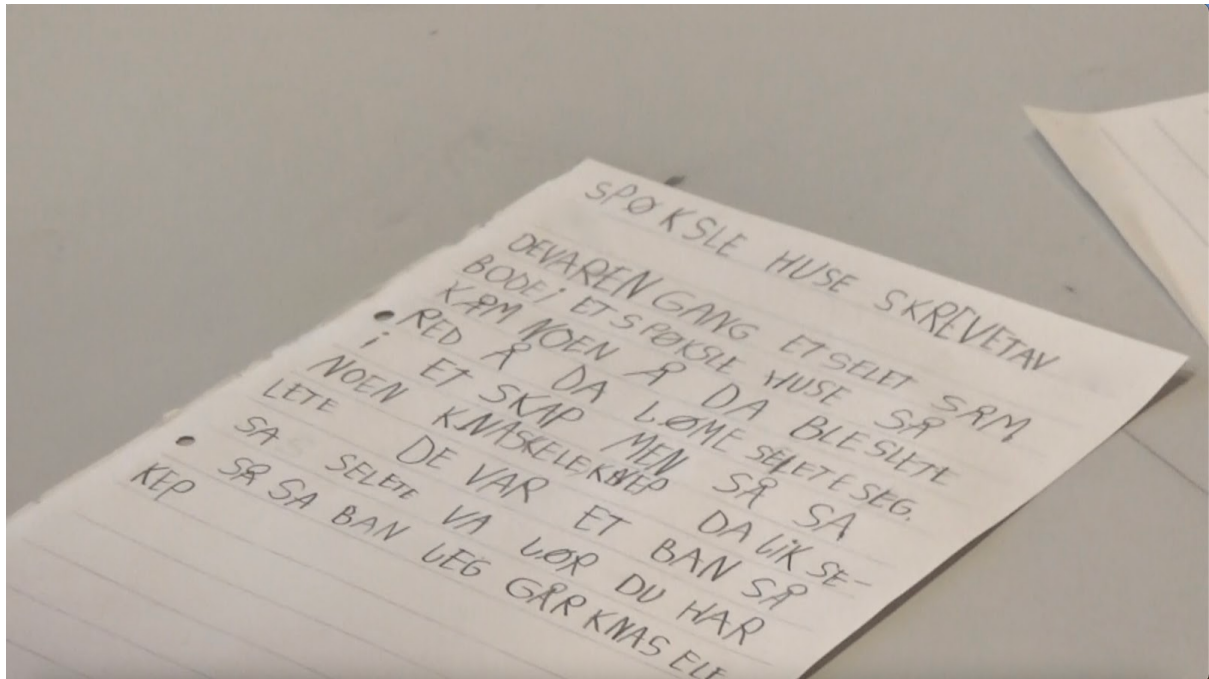 SPØKSLE HUSE SKREVETAV
DEVAREN GANG ET SELET SRM
BODE i ET SPØKSLE HUSE SÅ
KÅM NOEN Å DA BLE SLETE
RED Å DA LØME SELETE SEG.
i ET SKAP MEN SÅ SA
NOEN KNASKELEKNEP DA LiK SE-
LETE DE VAR ET BAN SÅ
SA SELETE VA LØR DU HAR
SÅ SA BAN LEG GÅR KNAS ELE
KEP